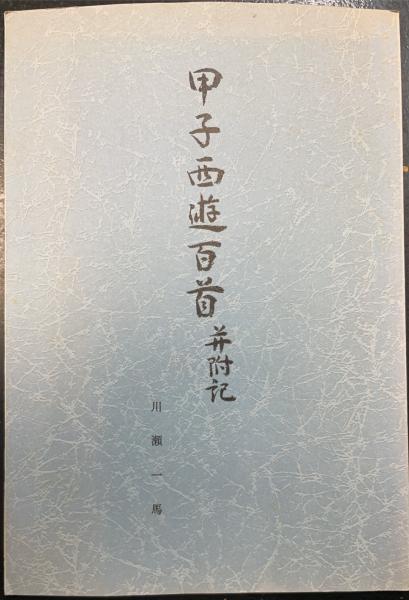 甲子西遊百首并附記
川瀬一馬